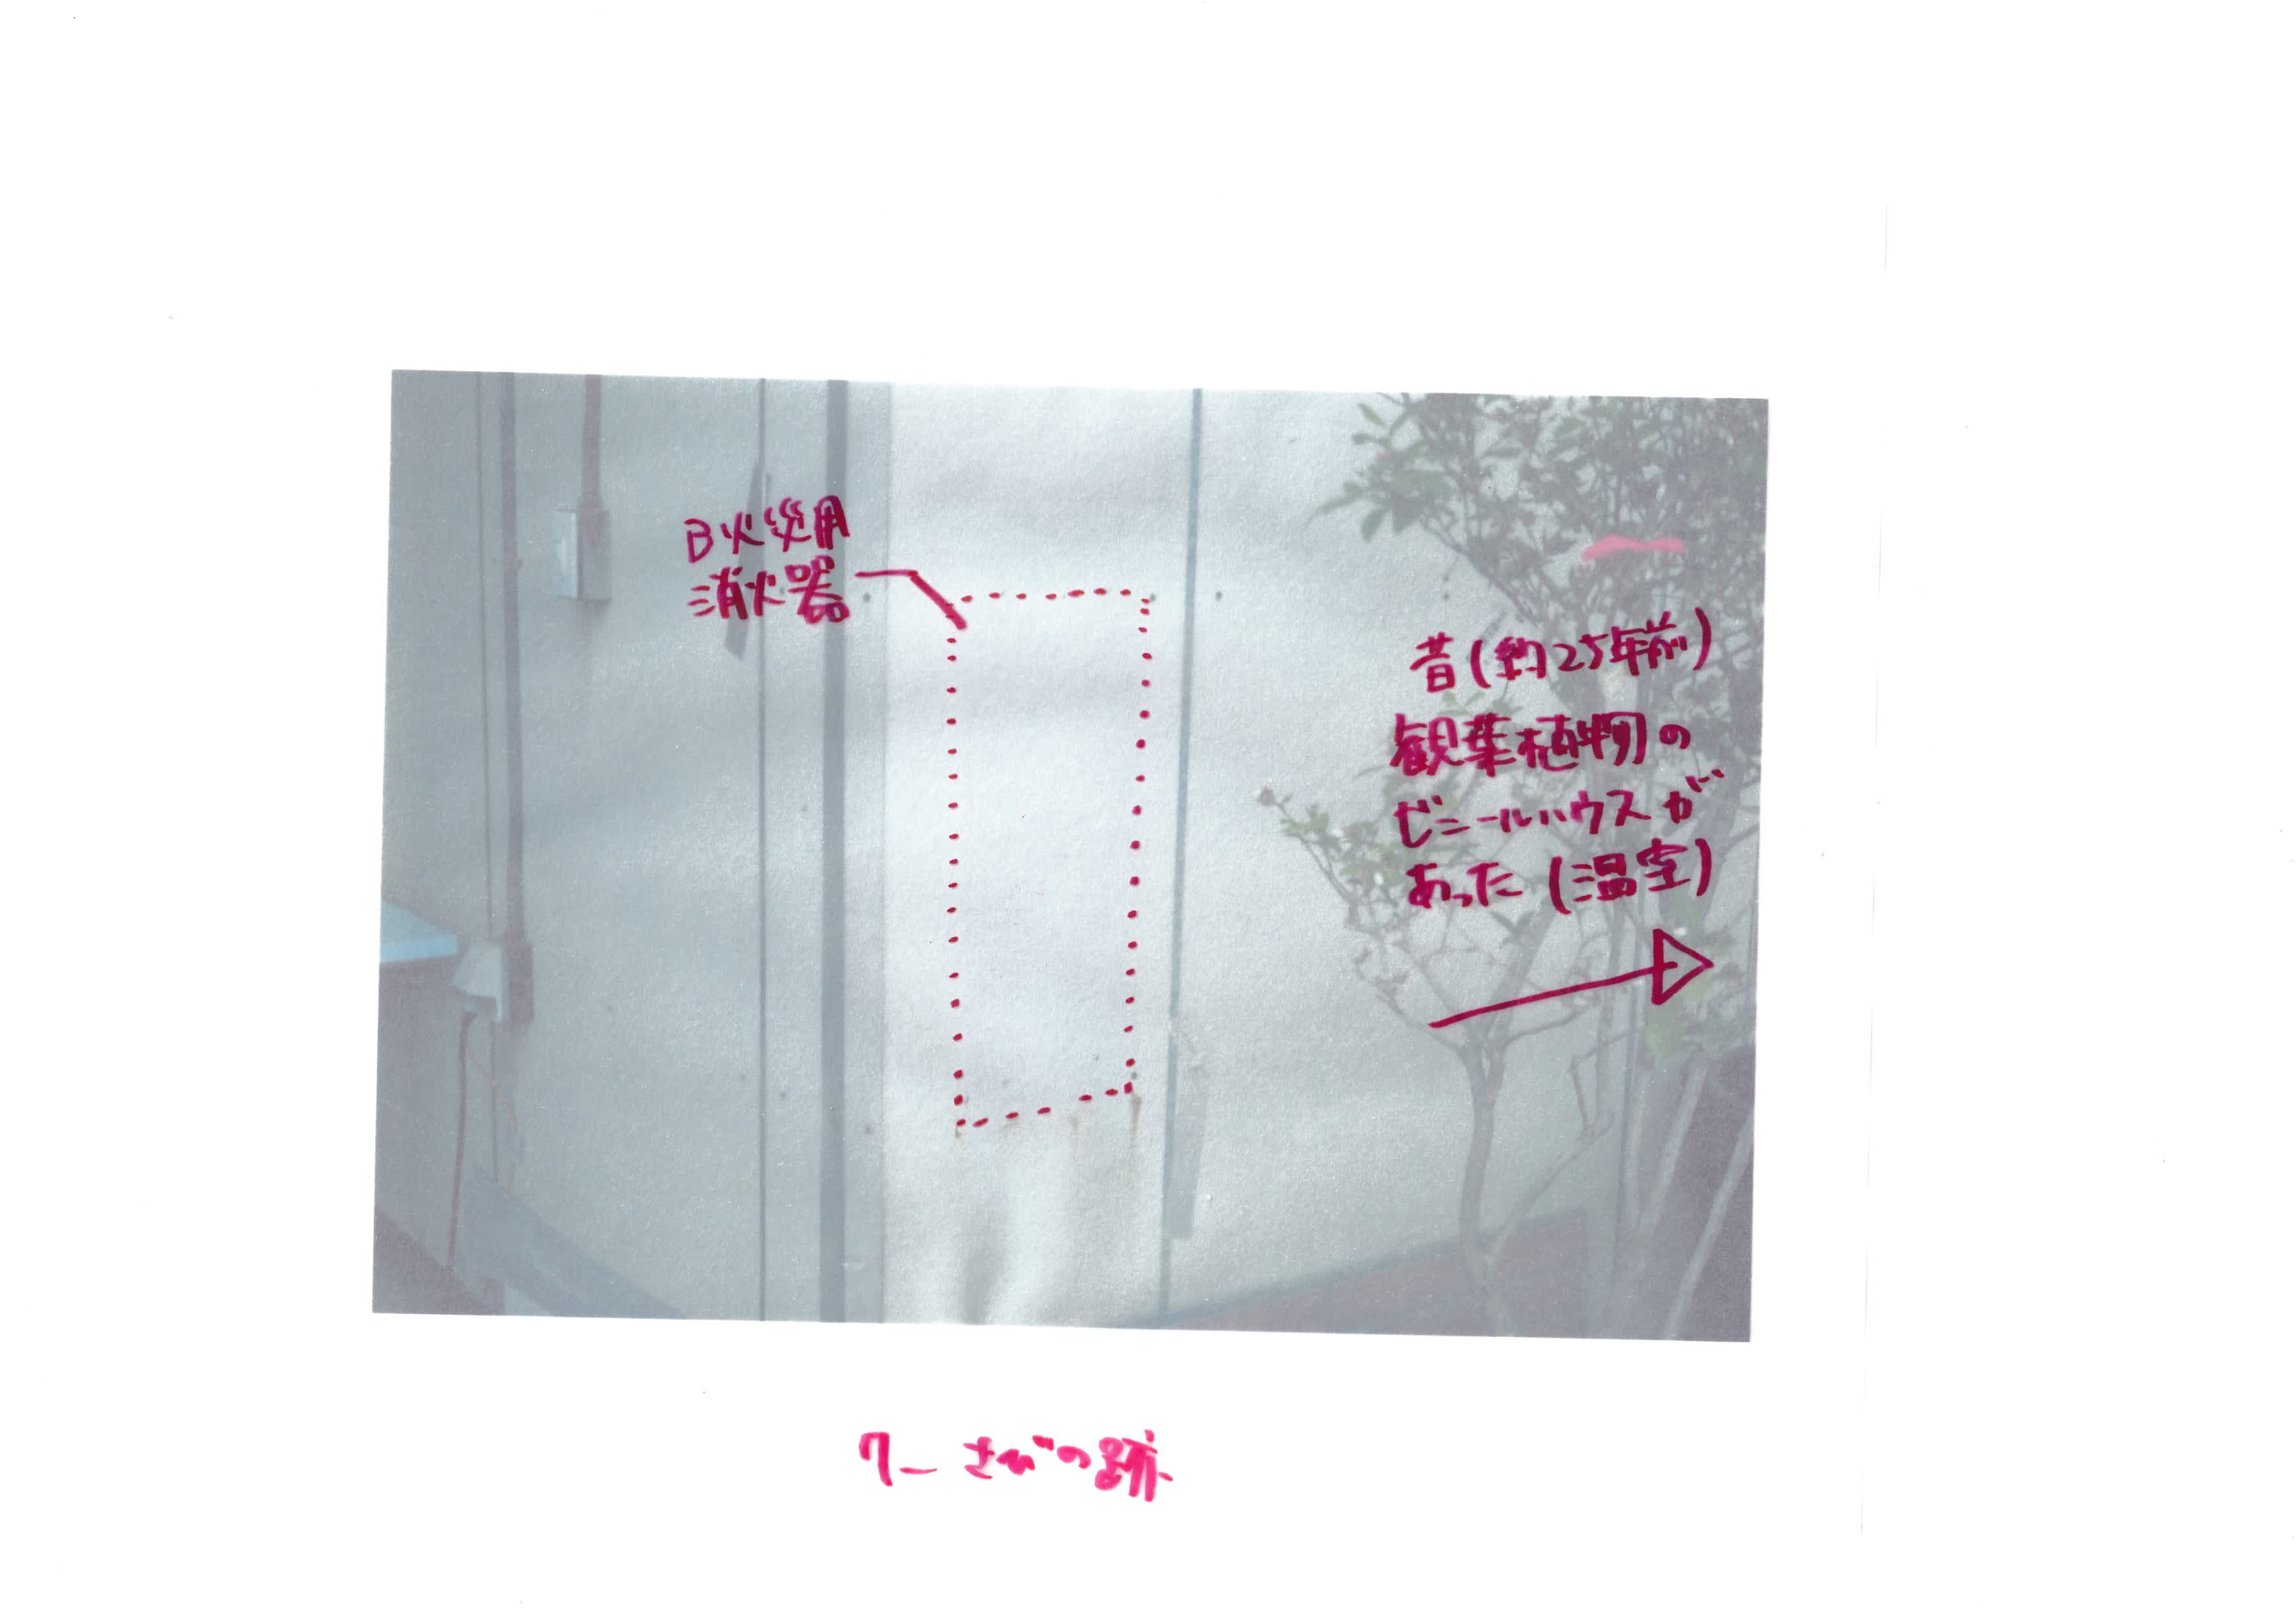 B火災用
消火器
昔(約25年前)
観葉植物の
ビニールハウスが
あった(温室)
7_ さびの跡